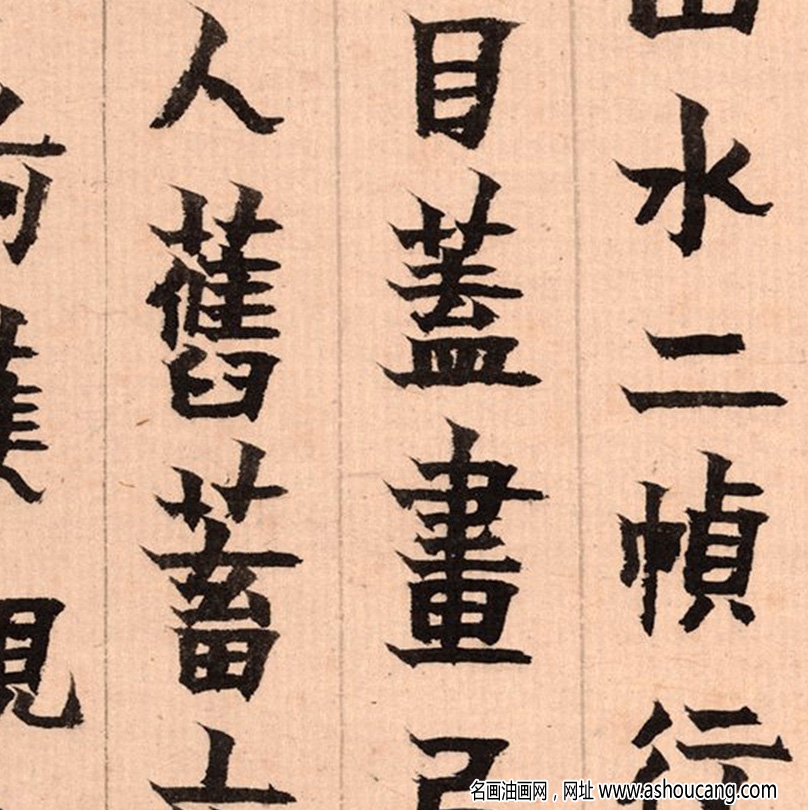 山水二幀行
目蓋畫已
人舊蓄古
名画油画网，网址 www.ashoucang.com